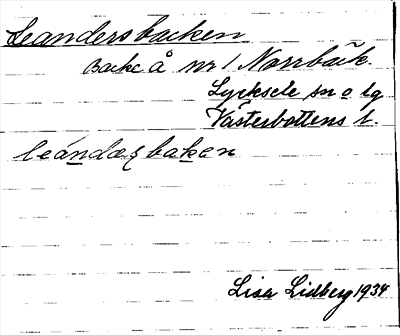 Leandersbacken
Backe å nr 1 Norrbäck.
Lycksele sn o tg
Västerbottens l.
leandæʂbaken
Lisa Lidberg 1934